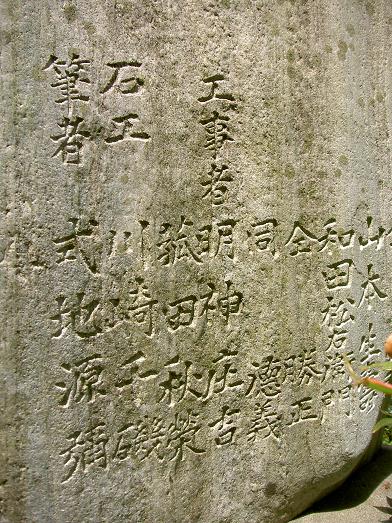 山本
和田松右衛門
仝 勝正
同 德義
工事者 明神庄吉
菰田秋榮
石工 川崎千磯
筆者 式地源彌